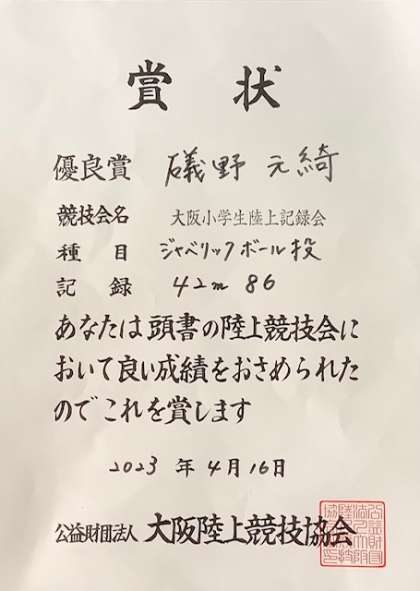 賞状
優良賞 礒野 元綺
競技会名 大阪小学生陸上記録会
種目 ジャベリックボール投
記録 42m 86
あなたは頭書の陸上競技会に
おいて良い成績をおさめられた
のでこれを賞します
2023 年 4月 16日
公益財団法人 大阪陸上競技協会